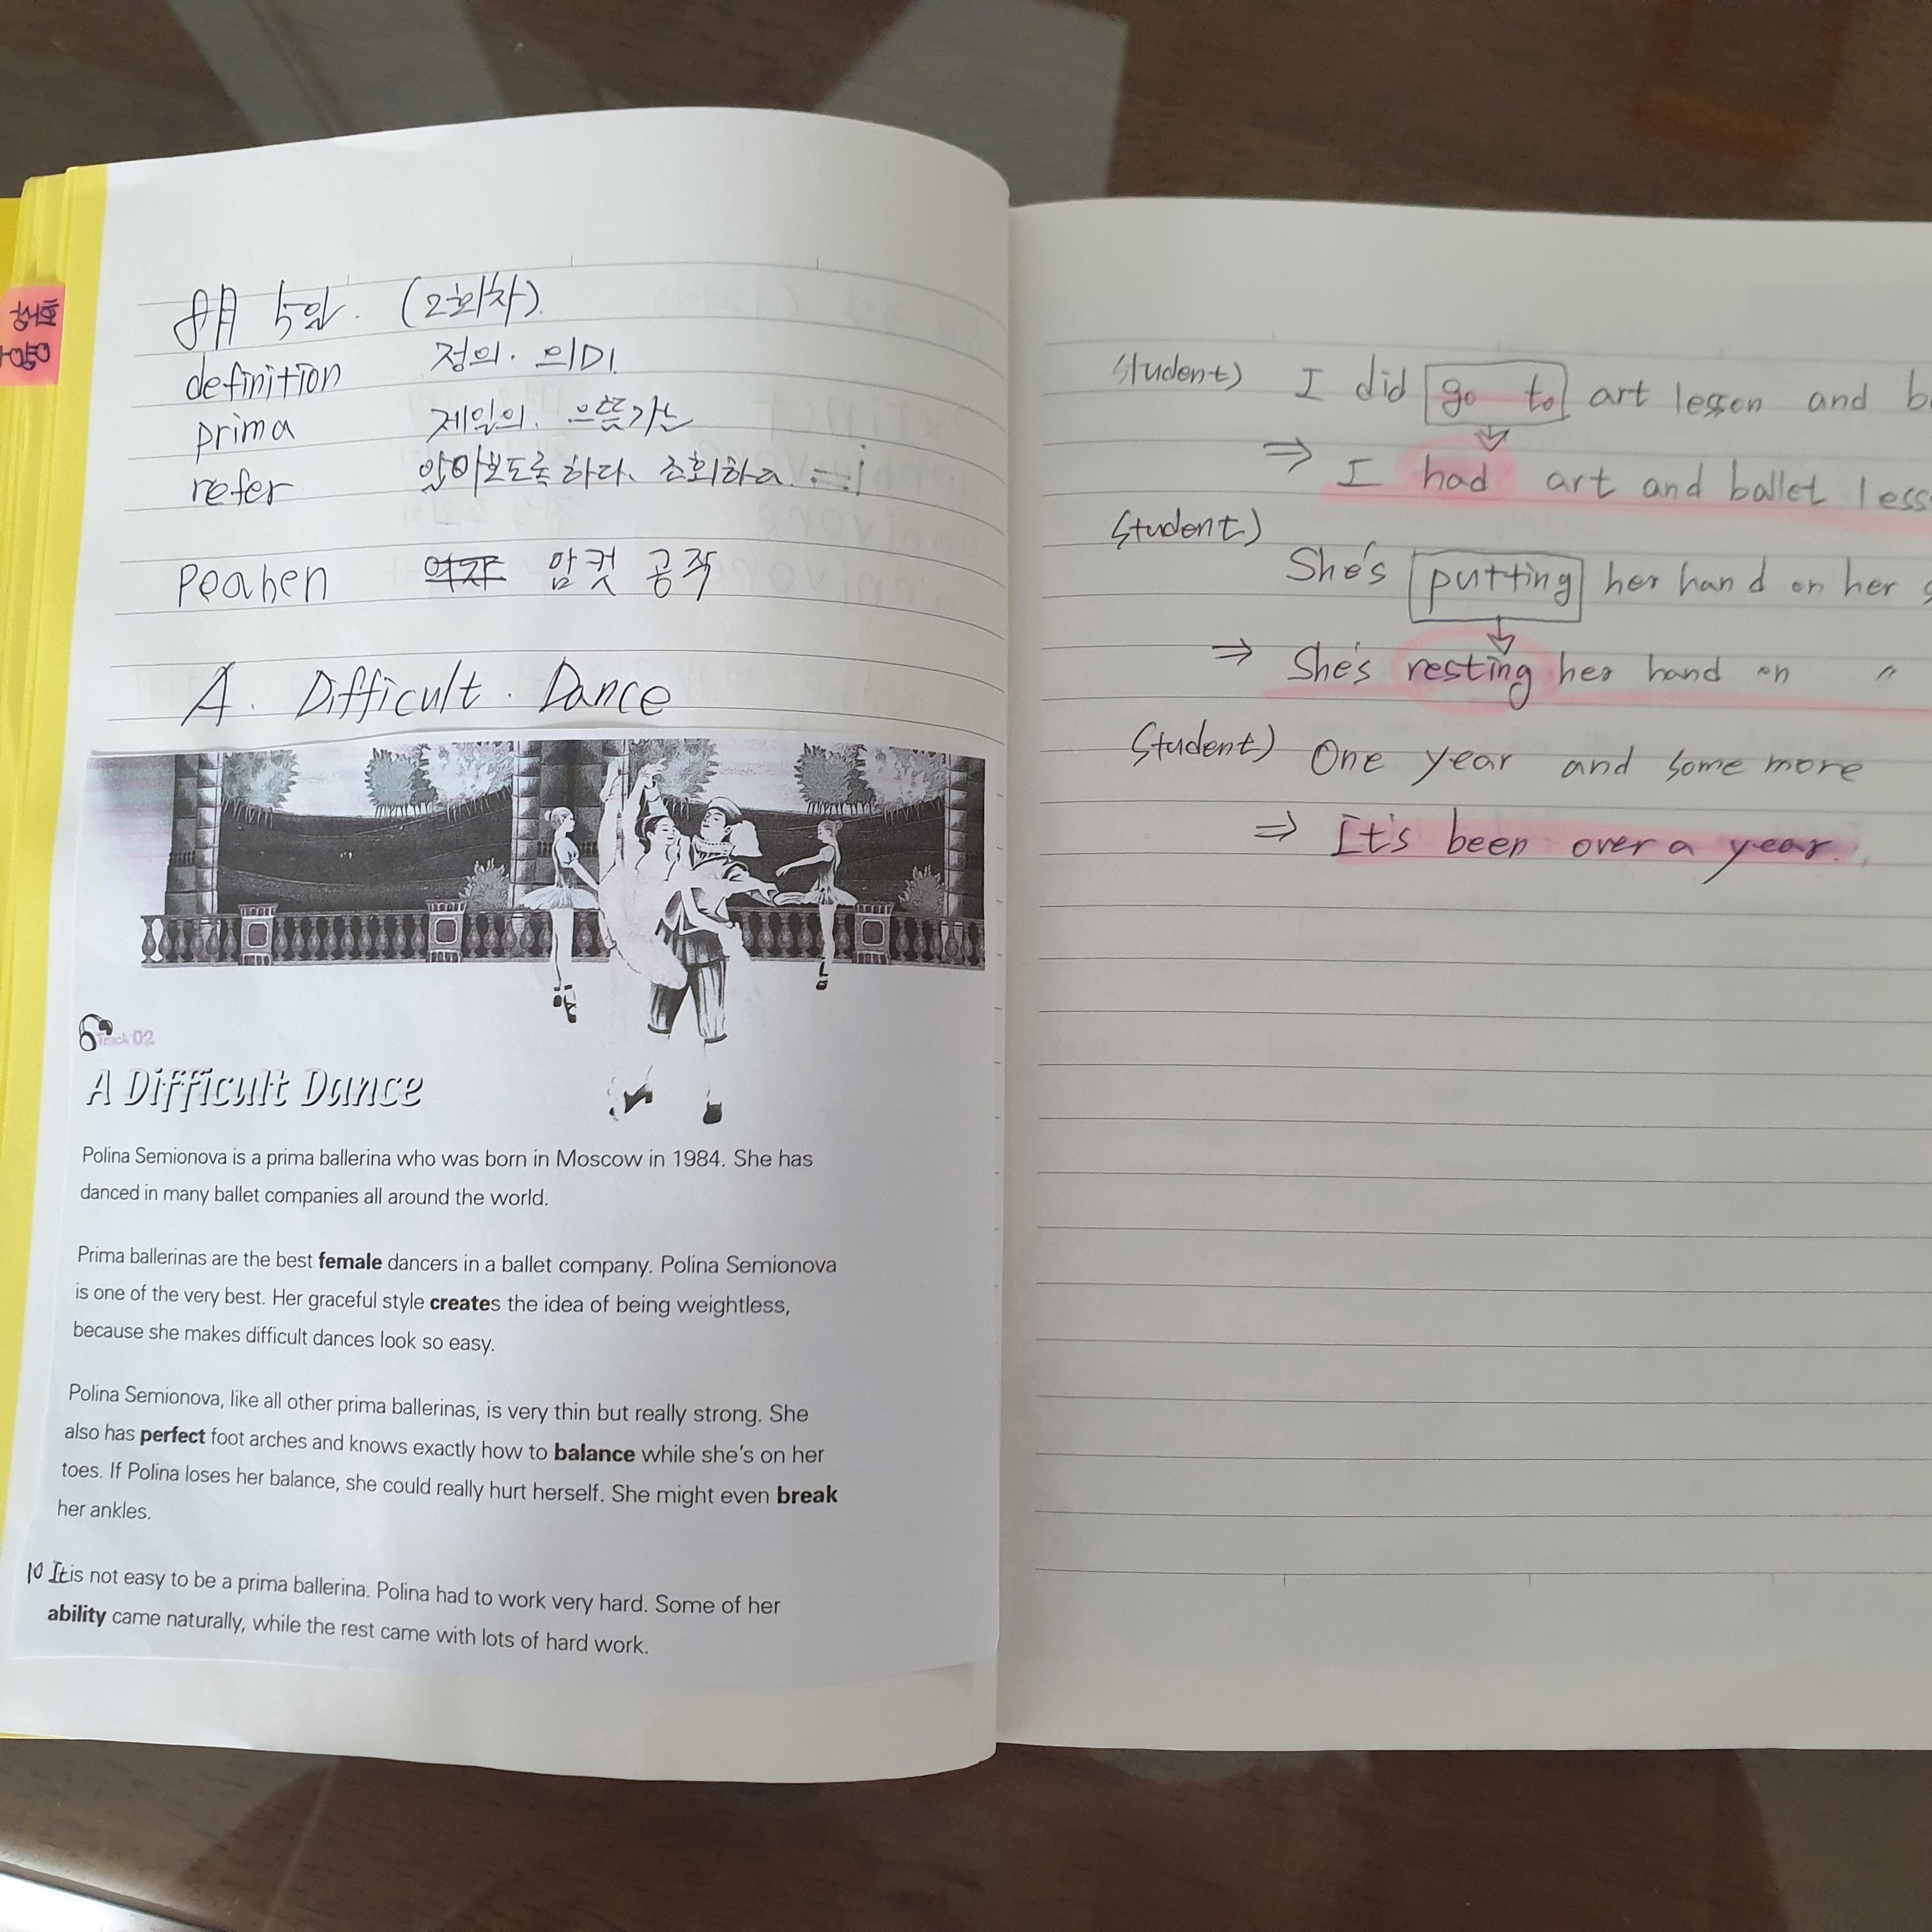 화상
영어
8月 5일. (2회차).
definition 정의. 의미.
prima 제일의. 으뜸가는
refer 알아보도록하다. 조회하다.
peahen 암컷 공작
A. Difficult. Dance
Track 02
A Difficult Dance
Polina Semionova is a prima ballerina who was born in Moscow in 1984. She has
danced in many ballet companies all around the world.
Prima ballerinas are the best female dancers in a ballet company. Polina Semionova
is one of the very best. Her graceful style creates the idea of being weightless,
because she makes difficult dances look so easy.
Polina Semionova, like all other prima ballerinas, is very thin but really strong. She
also has perfect foot arches and knows exactly how to balance while she's on her
toes. If Polina loses her balance, she could really hurt herself. She might even break
her ankles.
10 It is not easy to be a prima ballerina. Polina had to work very hard. Some of her
ability came naturally, while the rest came with lots of hard work.
Student) I did go to art lesson and
⇒ I had art and ballet less
Student)
She's putting her hand on her
⇒ She's resting her hand on 〃
Student) One year and some more
⇒ It's been over a year.